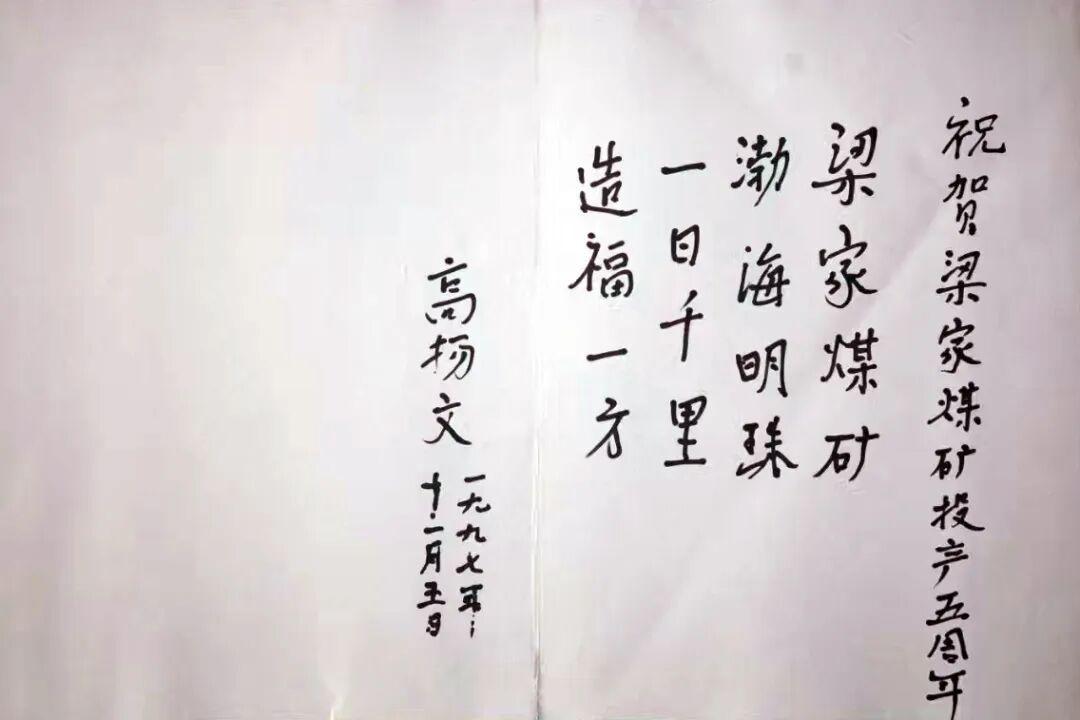 祝贺梁家煤矿投产五周年
梁家煤矿
渤海明珠
一日千里
造福一方
高扬文
一九九七年
十一月五日